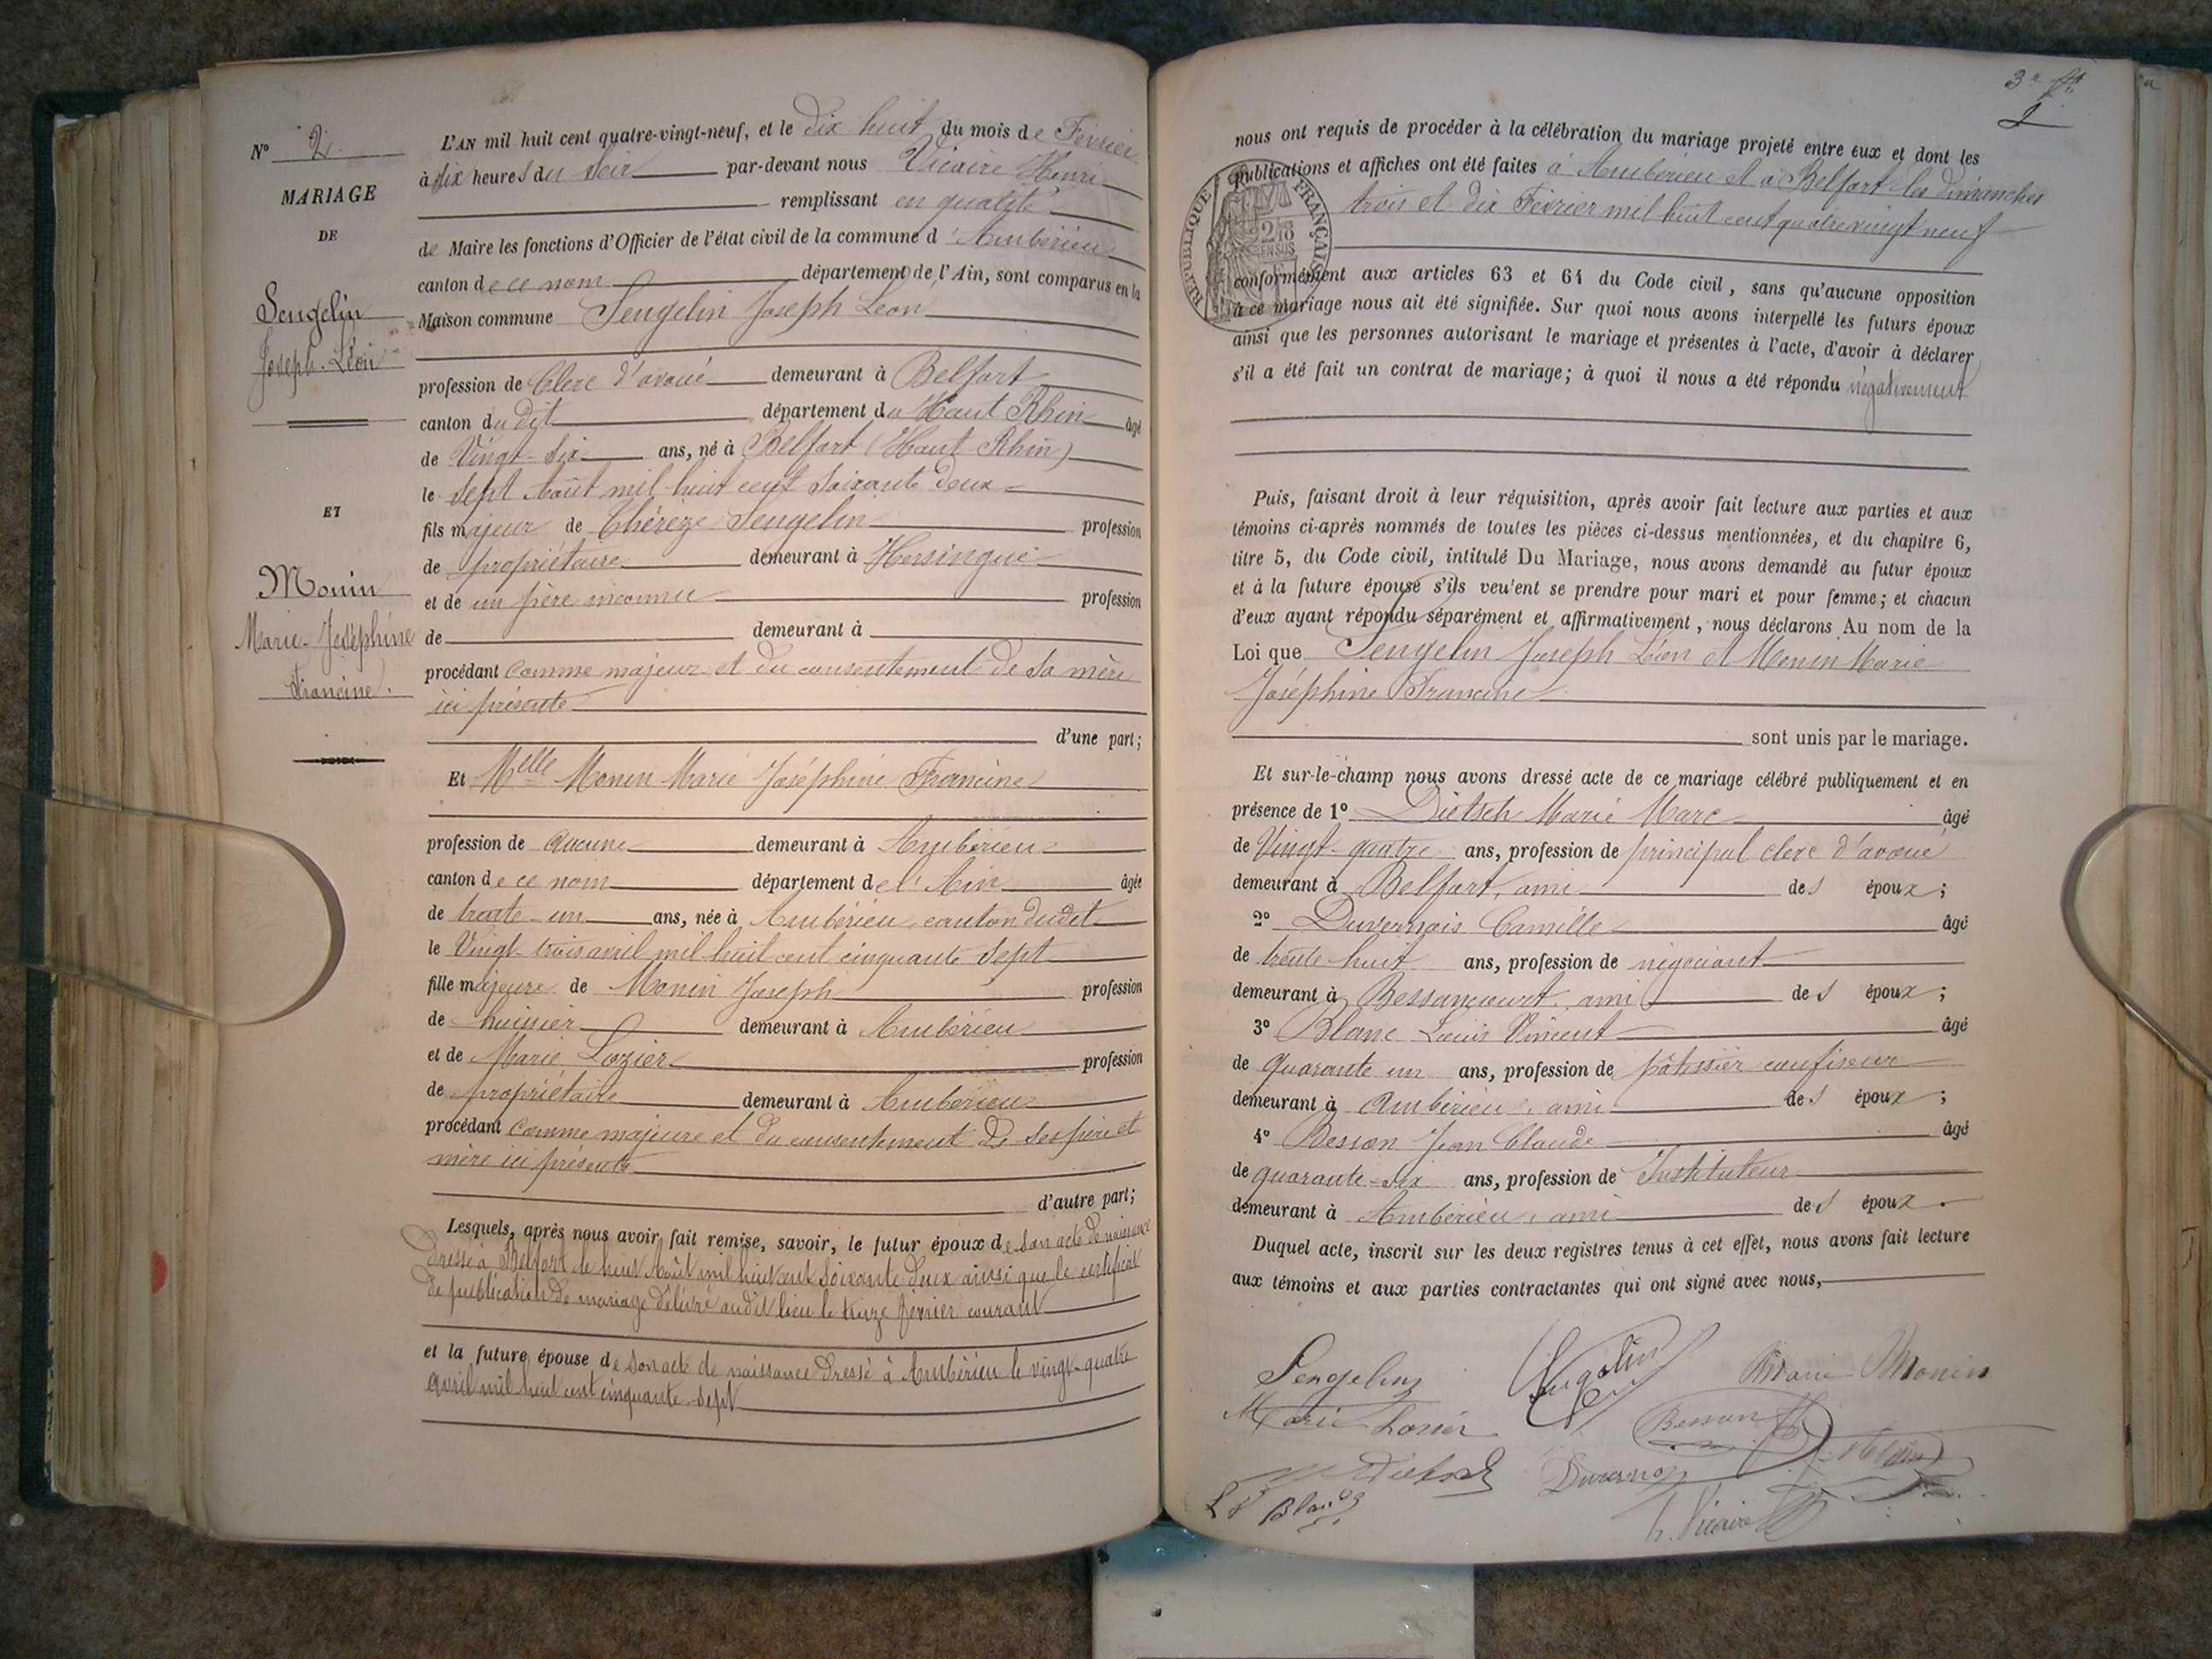 N° 2
MARIAGE
DE
Sengelin
Joseph-Léon
ET
Monin
Marie-Joséphine
Francine.
L'AN mil huit cent quatre-vingt-neuf, et le dix huit du mois de Février
à six heures du soir par-devant nous Vicaire Henri
remplissant en qualité
de Maire les fonctions d'Officier de l'état civil de la commune d'Ambérieu
canton de ce nom département de l'Ain, sont comparus en la
Maison commune Sengelin Joseph Léon
profession de Clerc d'avoué demeurant à Belfort
canton du dit département du Haut Rhin âgé
de Vingt-six ans, né à Belfort (Haut-Rhin)
le sept Août mil huit cent soixante deux
fils majeur de Thérèze Sengelin profession
de propriétaire demeurant à Hersingue
et de un père inconnu profession
de demeurant à
procédant comme majeur et du consentement de sa mère
ici présente
d'une part;
Et Melle Monin Marie Joséphine Francine
profession de aucune demeurant à Ambérieu
canton de ce nom département de l'Ain âgée
de trente-un ans, née à Ambérieu, canton dudit
le Vingt-trois avril mil huit cent cinquante sept
fille majeure de Monin Joseph profession
de huissier demeurant à Ambérieu
et de Marie Lozier profession
de propriétaire demeurant à Ambérieu
procédant comme majeure et du consentement de ses père et
mère ici présents
d'autre part;
Lesquels, après nous avoir fait remise, savoir, le futur époux de son acte de naissance
dressé à Belfort le huit Août mil huit cent soixante deux ainsi que le certificat
de publication de mariage délivré audit lieu le treize février courant
et la future épouse de son acte de naissance dressé à Ambérieu le vingt-quatre
avril mil huit cent cinquante-sept
3e
2
nous ont requis de procéder à la célébration du mariage projeté entre eux et dont les
publications et affiches ont été faites à Ambérieu et à Belfort les dimanches
trois et dix Février mil huit cent quatre vingt neuf
RÉPUBLIQUE FRANÇAISE
conformément aux articles 63 et 64 du Code civil, sans qu'aucune opposition
à ce mariage nous ait été signifiée. Sur quoi nous avons interpellé les futurs époux
ainsi que les personnes autorisant le mariage et présentes à l'acte, d'avoir à déclarer
s'il a été fait un contrat de mariage; à quoi il nous a été répondu négativement
Puis, faisant droit à leur réquisition, après avoir fait lecture aux parties et aux
témoins ci-après nommés de toutes les pièces ci-dessus mentionnées, et du chapitre 6,
titre 5, du Code civil, intitulé Du Mariage, nous avons demandé au futur époux
et à la future épouse s'ils veu'ent se prendre pour mari et pour femme; et chacun
d'eux ayant répondu séparément et affirmativement, nous déclarons Au nom de la
Loi que Sengelin Joseph Léon et Monin Marie
Joséphine Francine
sont unis par le mariage.
Et sur-le-champ nous avons dressé acte de ce mariage célébré publiquement et en
présence de 1° Dietsch Marie Marc âgé
de Vingt-quatre ans, profession de principal clerc d'avoué
demeurant à Belfort, ami des époux;
2° Duvernois Camille âgé
de trente-huit ans, profession de négociant
demeurant à Bessancourt, ami des époux;
3° Blanc Louis Vincent âgé
de quarante un ans, profession de pâtissier confiseur
demeurant à Ambérieu, ami des époux;
4° Besson Jean Claude âgé
de quarante-six ans, profession de Instituteur
demeurant à Ambérieu, ami des époux.
Duquel acte, inscrit sur les deux registres tenus à cet effet, nous avons fait lecture
aux témoins et aux parties contractantes qui ont signé avec nous,
Sengelin Sengelin Marie Monin
Marie Losier Besson
Dietsch Duvernoy
Blanc
h. Vicaire